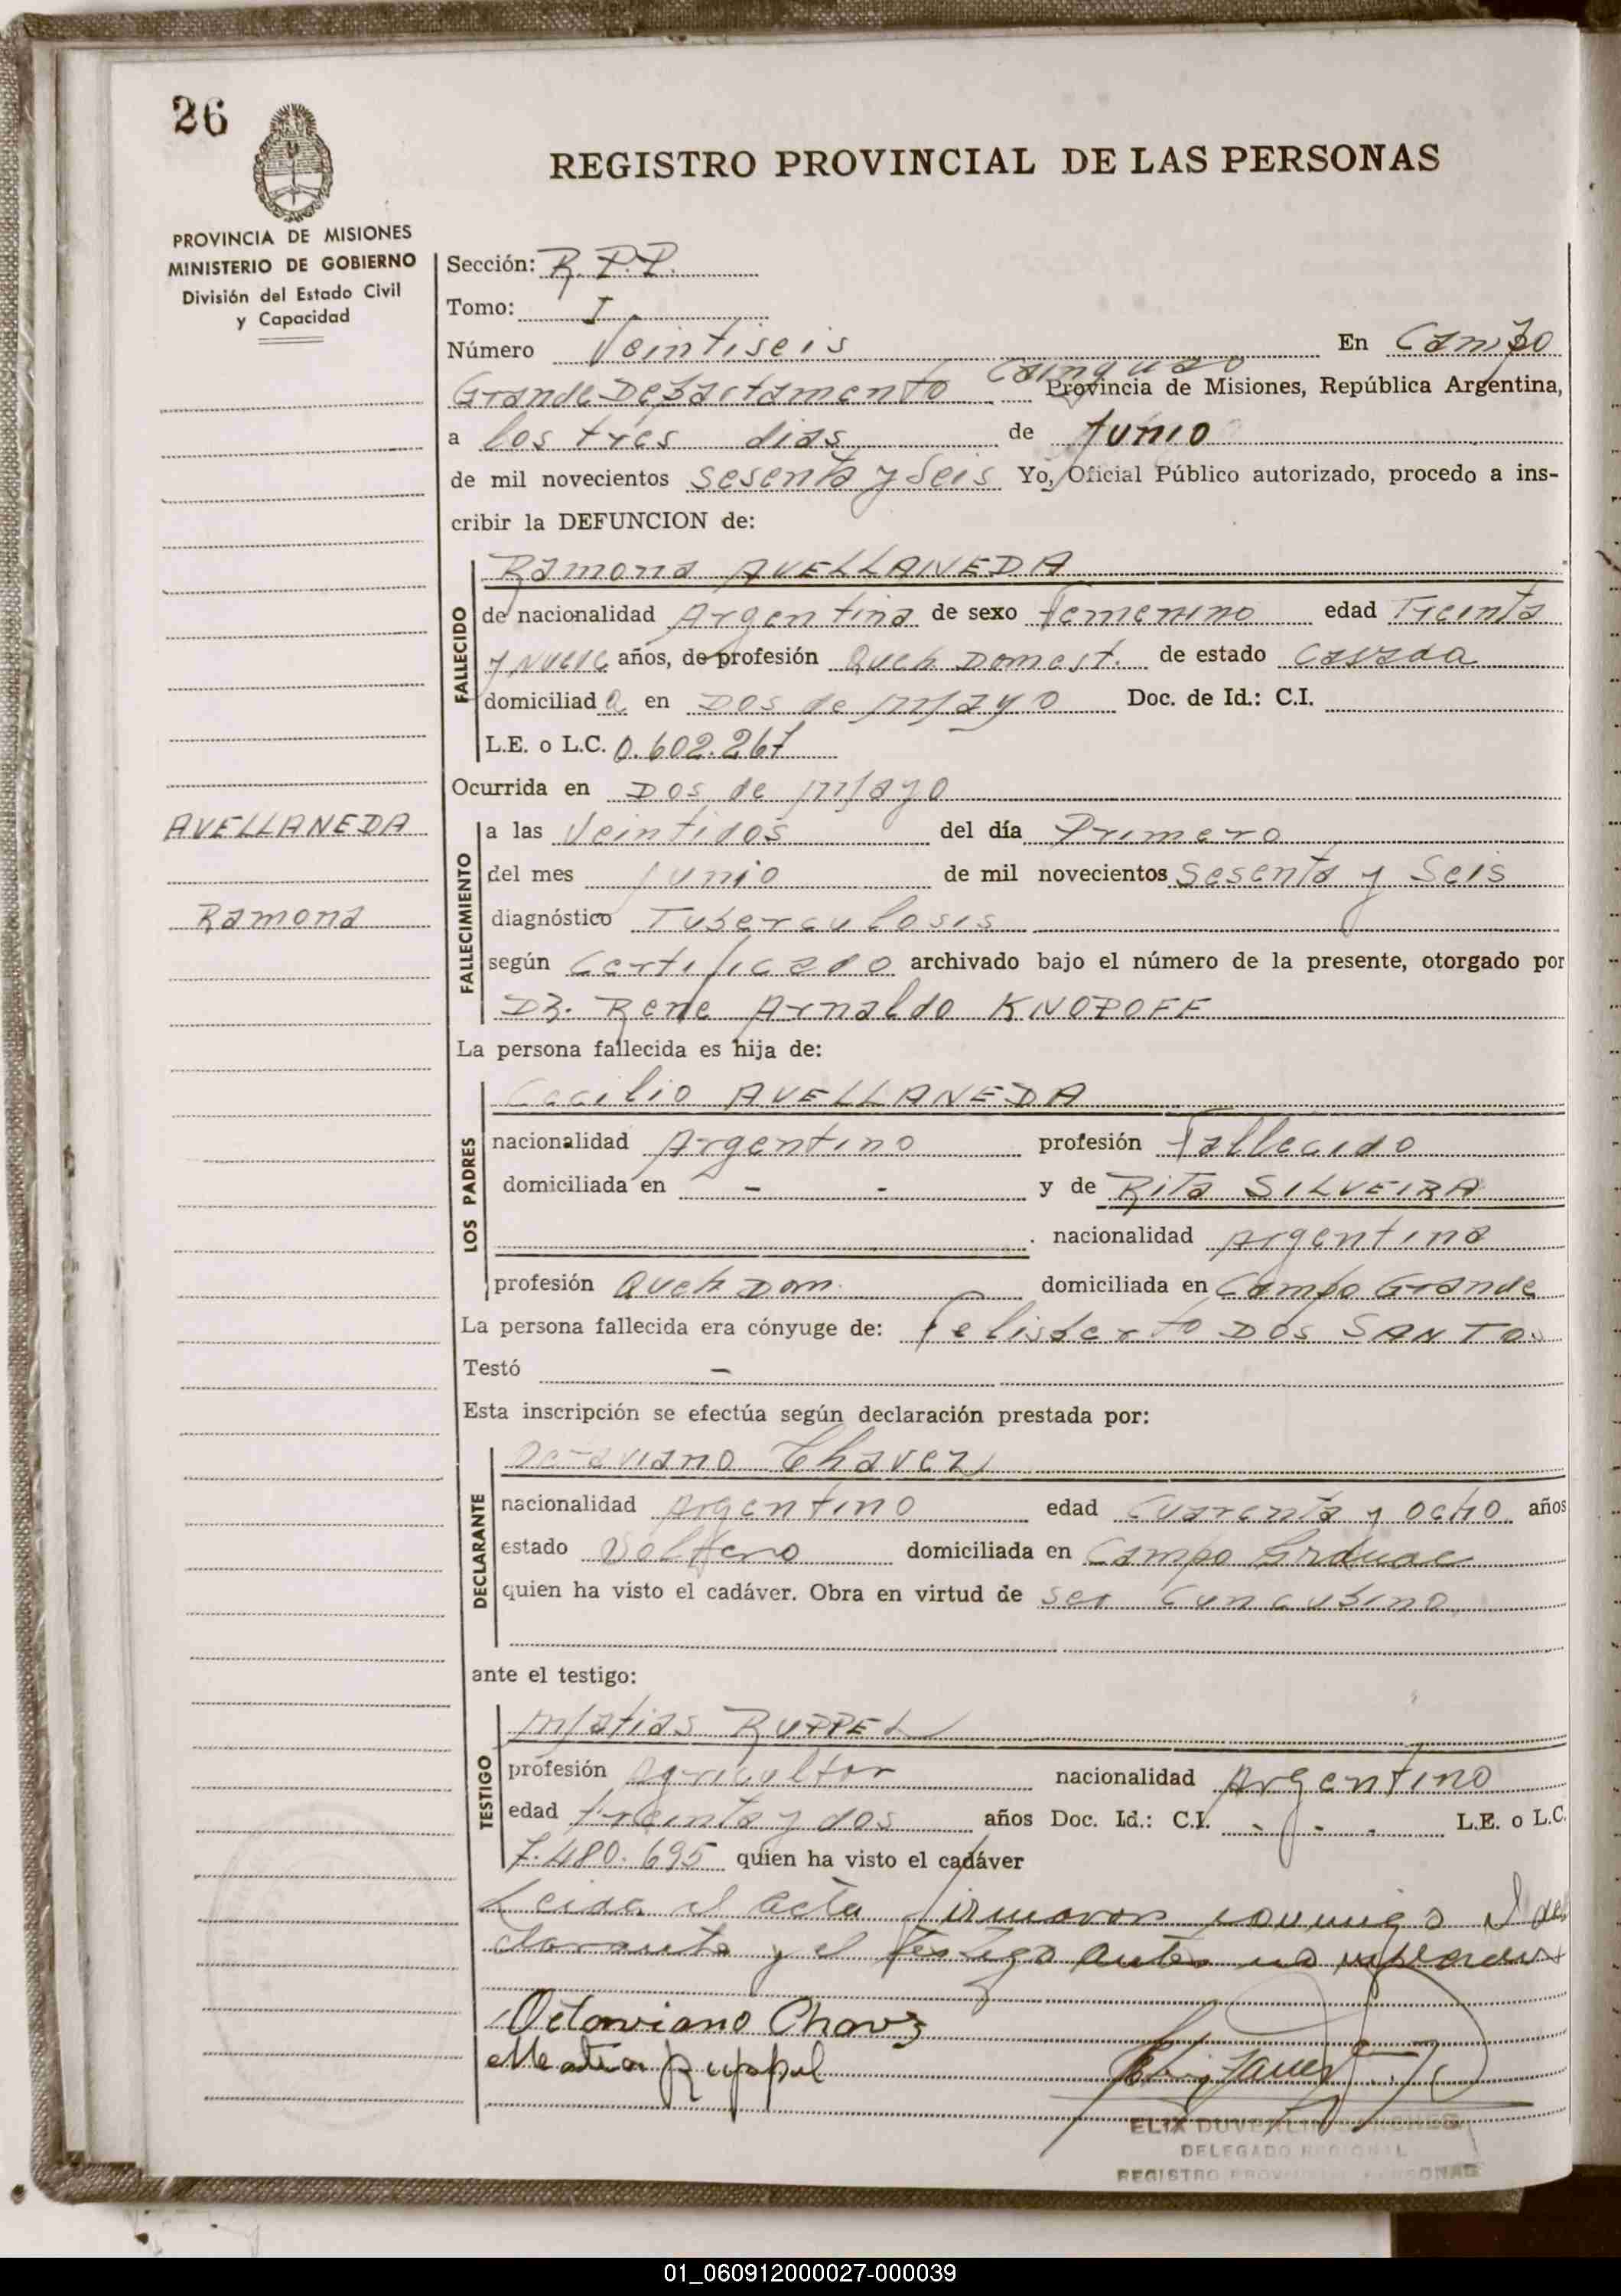 26
REGISTRO PROVINCIAL DE LAS PERSONAS
PROVINCIA DE MISIONES
MINISTERIO DE GOBIERNO
División del Estado Civil
y Capacidad
Sección: R.P.P.
Tomo: I
Número Veintiseis En Campo
Grande Departamento Cainguas Provincia de Misiones, República Argentina,
a los tres dias de Junio
de mil novecientos sesenta y Seis Yo, Oficial Público autorizado, procedo a ins-
cribir la DEFUNCION de:
FALLECIDO
Ramona AVELLANEDA
de nacionalidad Argentina de sexo femenino edad Treinta
y nueve años, de profesión Queh Domest. de estado casada
domiciliada en Dos de Mayo Doc. de Id.: C.I.
L.E. o L.C. 0.602.267
Ocurrida en Dos de Mayo
AVELLANEDA
Ramona
FALLECIMIENTO
a las Veintidos del día Primero
del mes junio de mil novecientos Sesenta y Seis
diagnóstico Tuberculosis
según Certificado archivado bajo el número de la presente, otorgado por
Dr. Rene Arnaldo KNOPOFF
La persona fallecida es hija de:
LOS PADRES
Cecilio AVELLANEDA
nacionalidad Argentino profesión Fallecido
domiciliada en - - y de Rita SILVEIRA
nacionalidad Argentina
profesión Queh Dom. domiciliada en Campo Grande
La persona fallecida era cónyuge de: Felisberto DOS SANTOS
Testó -
Esta inscripción se efectúa según declaración prestada por:
DECLARANTE
Octaviano Chavez
nacionalidad Argentino edad Cuarenta y ocho años
estado Soltero domiciliada en Campo Grande
quien ha visto el cadáver. Obra en virtud de ser concubino
ante el testigo:
TESTIGO
Matias RUPPEL
profesión Agricultor nacionalidad Argentino
edad treinta y dos años Doc. Id.: C.I. - - - L.E. o L.C.
7.480.695 quien ha visto el cadáver
Leida el acta firmaron conmigo el de
clarante y el testigo antes
Octaviano Chavz
Matia Ruppel
ELIX
DELEGADO REGIONAL
REGISTRO PERSONAS
01_060912000027-000039